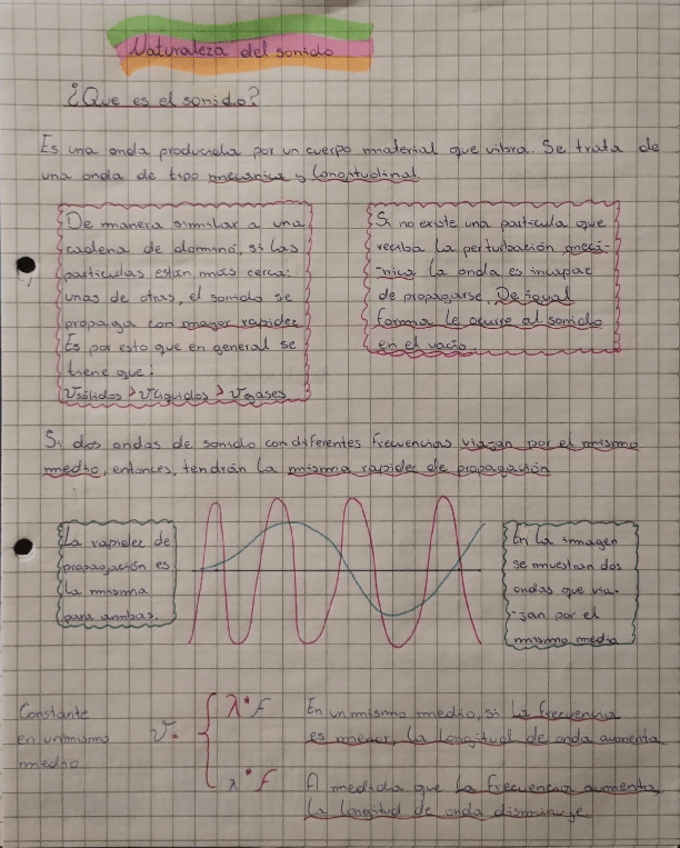 Naturaleza del sonido
¿Que es el sonido?
Es una onda producida por un cuerpo material que vibra. Se trata de
una onda de tipo mecanica y longitudinal
De manera similar a una
cadena de dominó, si las
particulas estan mas cerca
unas de otras, el sonido se
propaga con mayor rapidez
Es por esto que en general se
tiene que:
Vsólidos > Vliquidos > Vgases
Si no existe una particula que
reciba la perturbación mecá-
-nica la onda es incapac
de propagarse. De igual
forma le ocurre al sonido
en el vacio.
Si dos ondas de sonido con diferentes frecuencias viajan por el mismo
medio, entonces, tendrán la misma rapidez de propagación
La rapidez de
propagación es
la misma
para ambas.
En la imagen
se muestran dos
ondas que via-
-jan por el
mismo medio
Constante
en un mismo
medio
V = { λ * F
λ * F
En un mismo medio, si la frecuencia
es menor, la longitud de onda aumenta
A medida que la frecuencia aumenta,
la longitud de onda disminuye